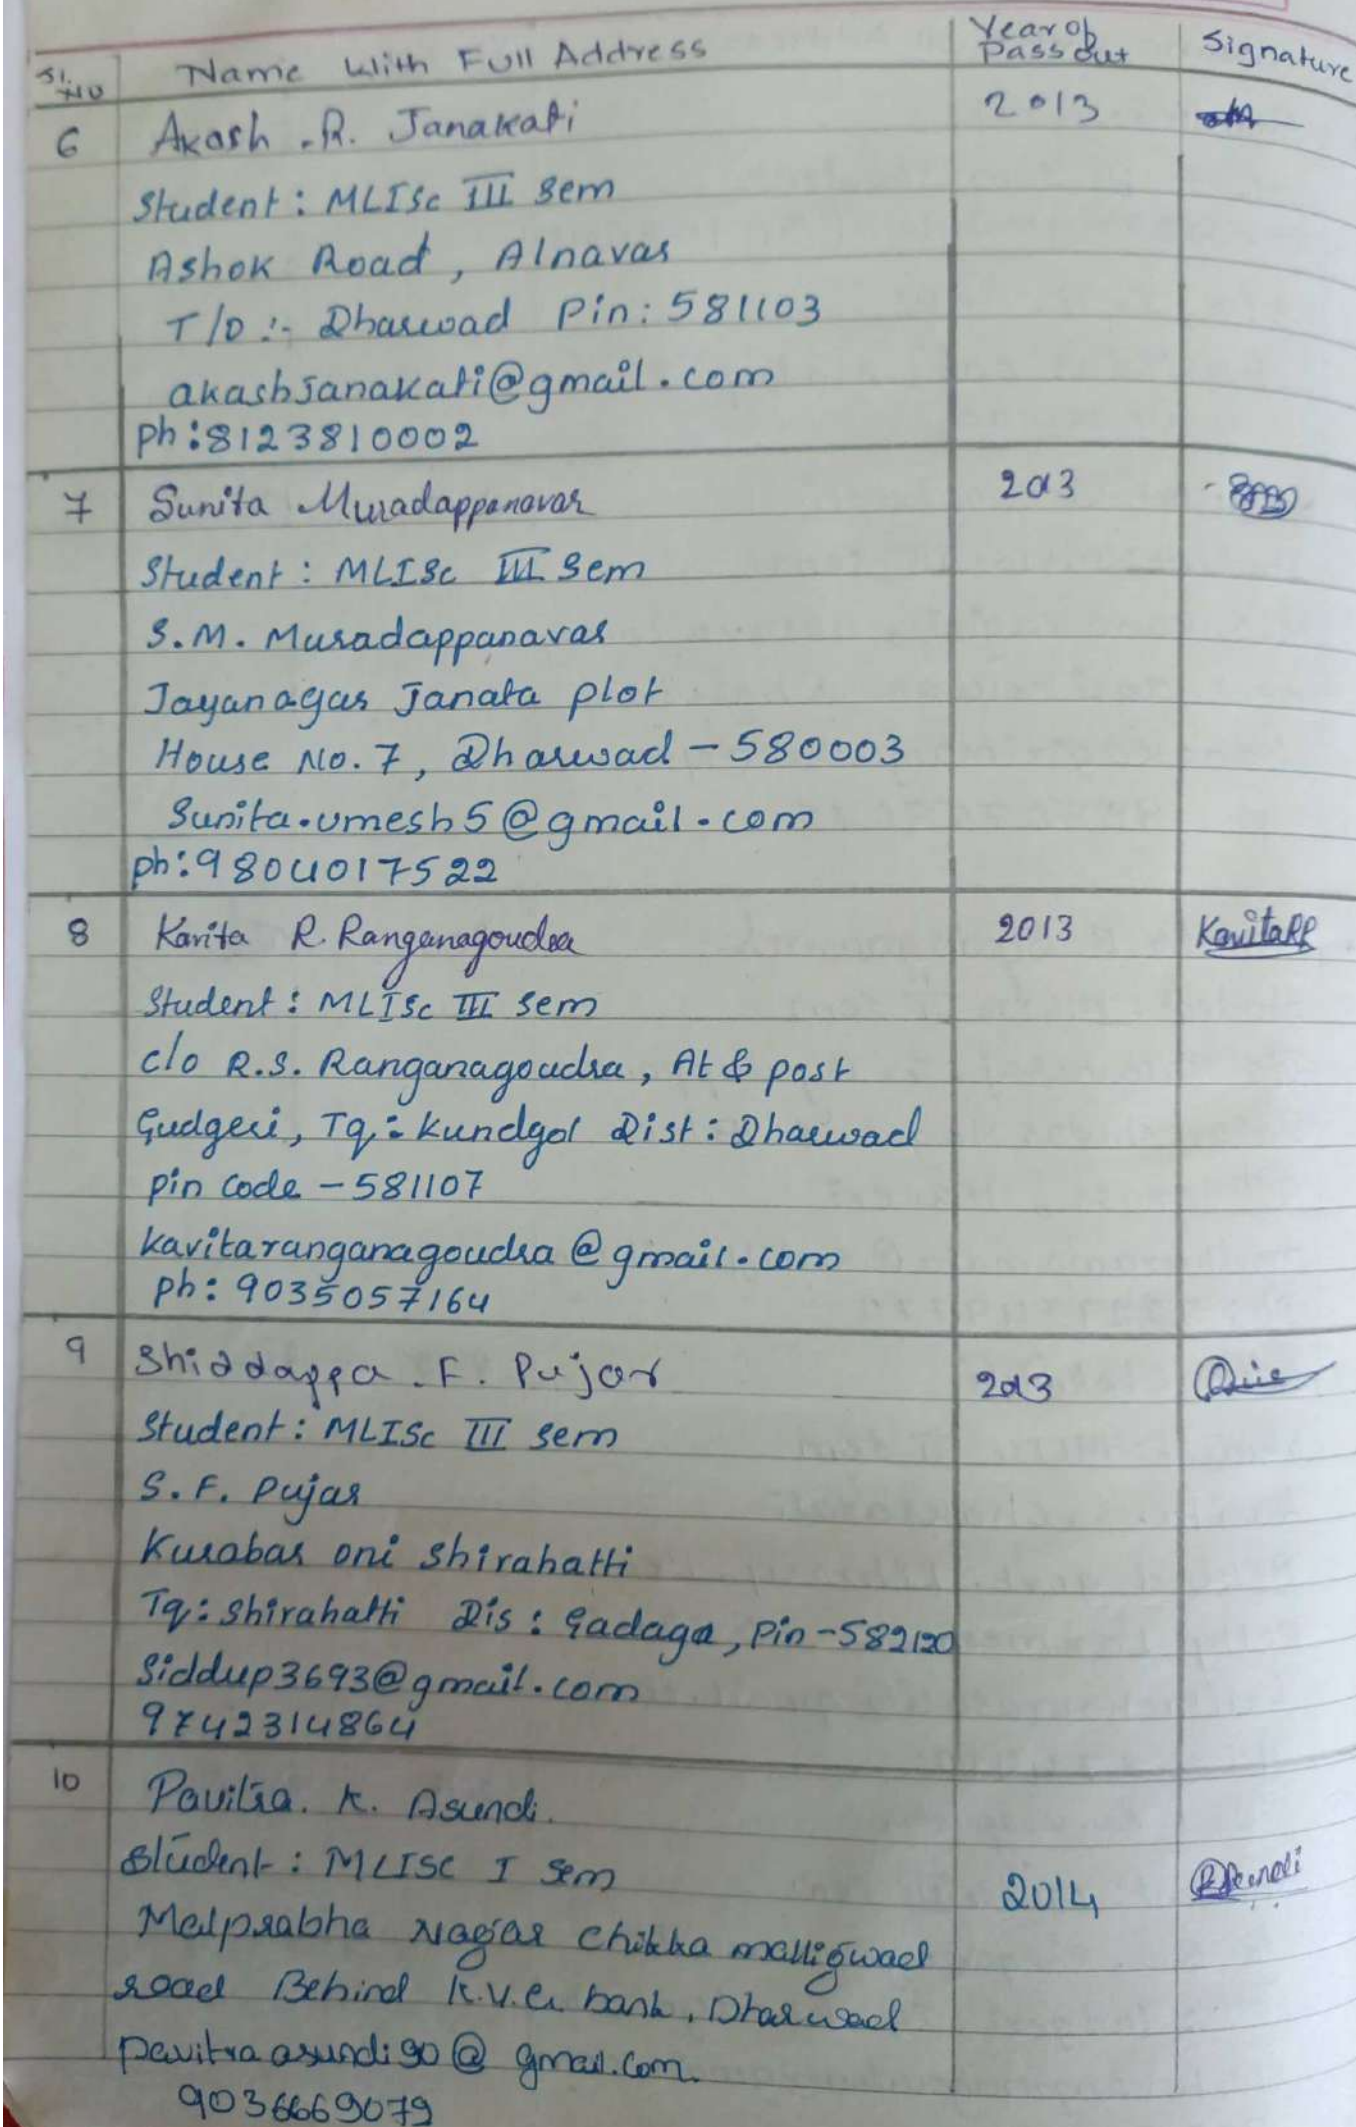 Sl. No Name With Full Address Year of Pass out Signature
6 Akash .R. Janakati 2013
Student : MLISc III Sem
Ashok Road, Alnavar
T/D :- Dharwad Pin: 581103
akashjanakati@gmail.com
ph:8123810002
7 Sunita Muradappanavar 2013
Student : MLISc III Sem
S.M. Muradappanavar
Jayanagar Janata plot
House No. 7, Dharwad - 580003
Sunita.umesh5@gmail.com
ph:9804017522
8 Kavita R. Ranganagoudra 2013 KavitaRR
Student : MLISc III Sem
c/o R.S. Ranganagoudra, At & post
Gudgeri, Tq: Kundgol Dist: Dharwad
pin code - 581107
kavitaranganagoudra@gmail.com
ph: 9035057164
9 Shiddappa .F. Pujar 2013
Student : MLISc III Sem
S.F. Pujar
Kurabar oni Shirahatti
Tq: Shirahatti Dis : Gadaga, Pin-582120
Siddup3693@gmail.com
9742314864
10 Pavitra. K. Asundi.
Student : MLISC I Sem 2014
Malprabha Nagar Chikka malligwad
road Behind K.V.G bank, Dharwad
pavitraasundi90@gmail.com.
9036669079